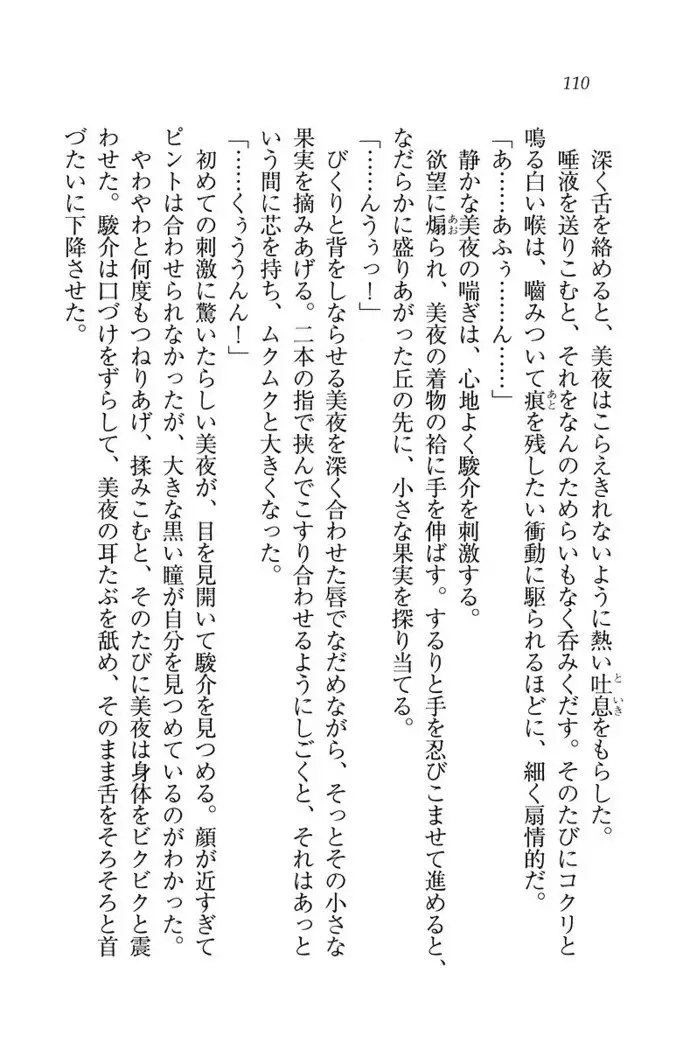 110
深く舌を絡めると、美夜はこらえきれないように熱い吐息をもらした。
唾液を送りこむと、それをなんのためらいもなく呑みくだす。そのたびにコクリと
鳴る白い喉は、嚙みついて痕を残したい衝動に駆られるほどに、細く扇情的だ。
「あ……あふぅ……ん……」
静かな美夜の喘ぎは、心地よく駿介を刺激する。
欲望に煽られ、美夜の着物の袷に手を伸ばす。するりと手を忍びこませて進めると、
なだらかに盛りあがった丘の先に、小さな果実を探り当てる。
「……んうぅっ！」
びくりと背をしならせる美夜を深く合わせた唇でなだめながら、そっとその小さな
果実を摘みあげる。二本の指で挟んでこすり合わせるようにしごくと、それはあっと
いう間に芯を持ち、ムクムクと大きくなった。
「……くぅううんん！」
初めての刺激に驚いたらしい美夜が、目を見開いて駿介を見つめる。顔が近すぎて
ピントは合わせられなかったが、大きな黒い瞳が自分を見つめているのがわかった。
やわやわと何度もつねりあげ、揉みこむと、そのたびに美夜は身体をビクビクと震
わせた。駿介は口づけをずらして、美夜の耳たぶを舐め、そのまま舌をそろそろと首
づたいに下降させた。